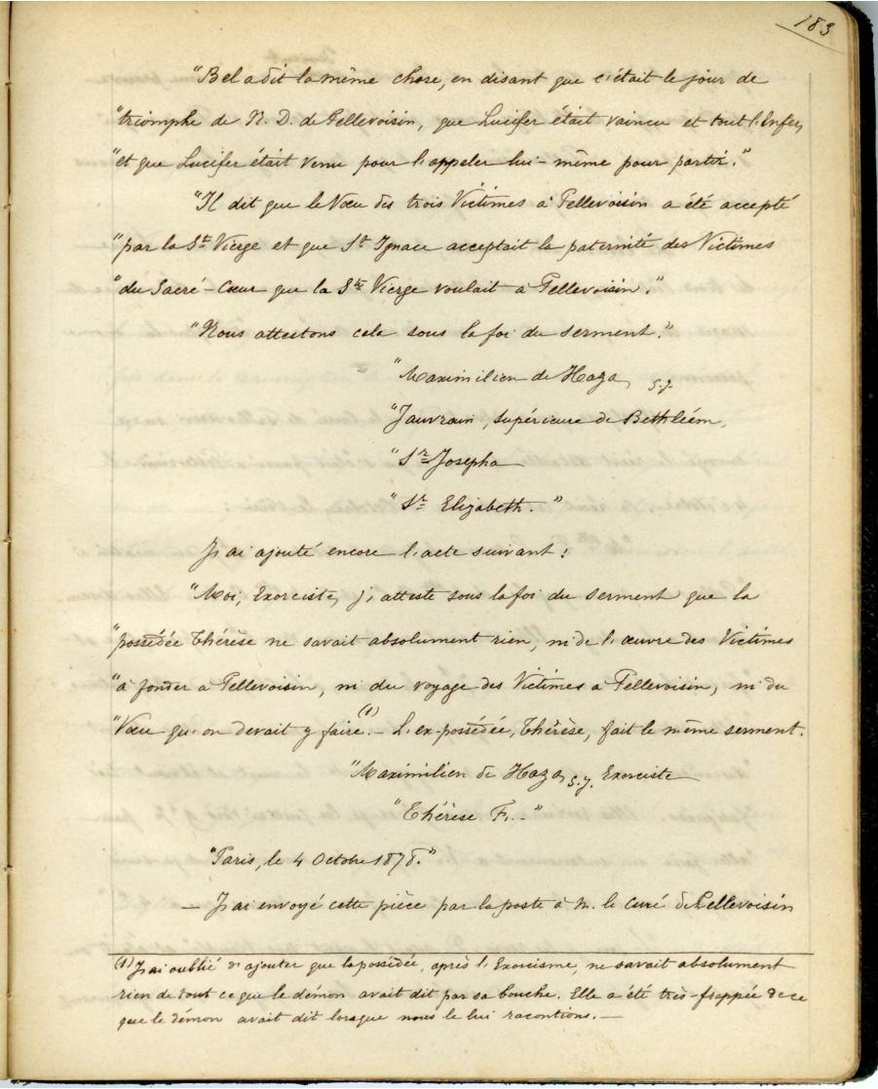 183
"Bel a dit la même chose, en disant que c'était le jour de
"triomphe de N. D. de Pellevoisin, que Lucifer était vaincu et tout l'Enfer,
"et que Lucifer était venu pour l'appeler lui-même pour partir."
"Il dit que le Vœu des trois Victimes à Pellevoisin a été accepté
"par la Ste Vierge et que St Ignace acceptait la paternité des Victimes
"du Sacré-Cœur que la Ste Vierge voulait à Pellevoisin."
"Nous attestons cela sous la foi du serment."
"Maximilien de Haza, s.j.
"Jauvrain, supérieure de Bethléem,
"Sr Josepha
"Sr Elizabeth."
J'ai ajouté encore l'acte suivant :
"Moi, Exorciste, j'atteste sous la foi du serment que la
"possédée Thérèse ne savait absolument rien, ni de l'œuvre des Victimes
"à fonder à Pellevoisin, ni du voyage des Victimes à Pellevoisin, ni du
"Vœu qu'on devait y faire.(1) – L'ex-possédée, Thérèse, fait le même serment.
"Maximilien de Haza, s.j. Exorciste
"Thérèse F..."
"Paris, le 4 Octobre 1878."
— J'ai envoyé cette pièce par la poste à M. le Curé de Pellevoisin
(1) J'ai oublié d'ajouter que la possédée, après l'Exorcisme, ne savait absolument
rien de tout ce que le démon avait dit par sa bouche. Elle a été très-frappée de ce
que le démon avait dit lorsque nous le lui racontions. —